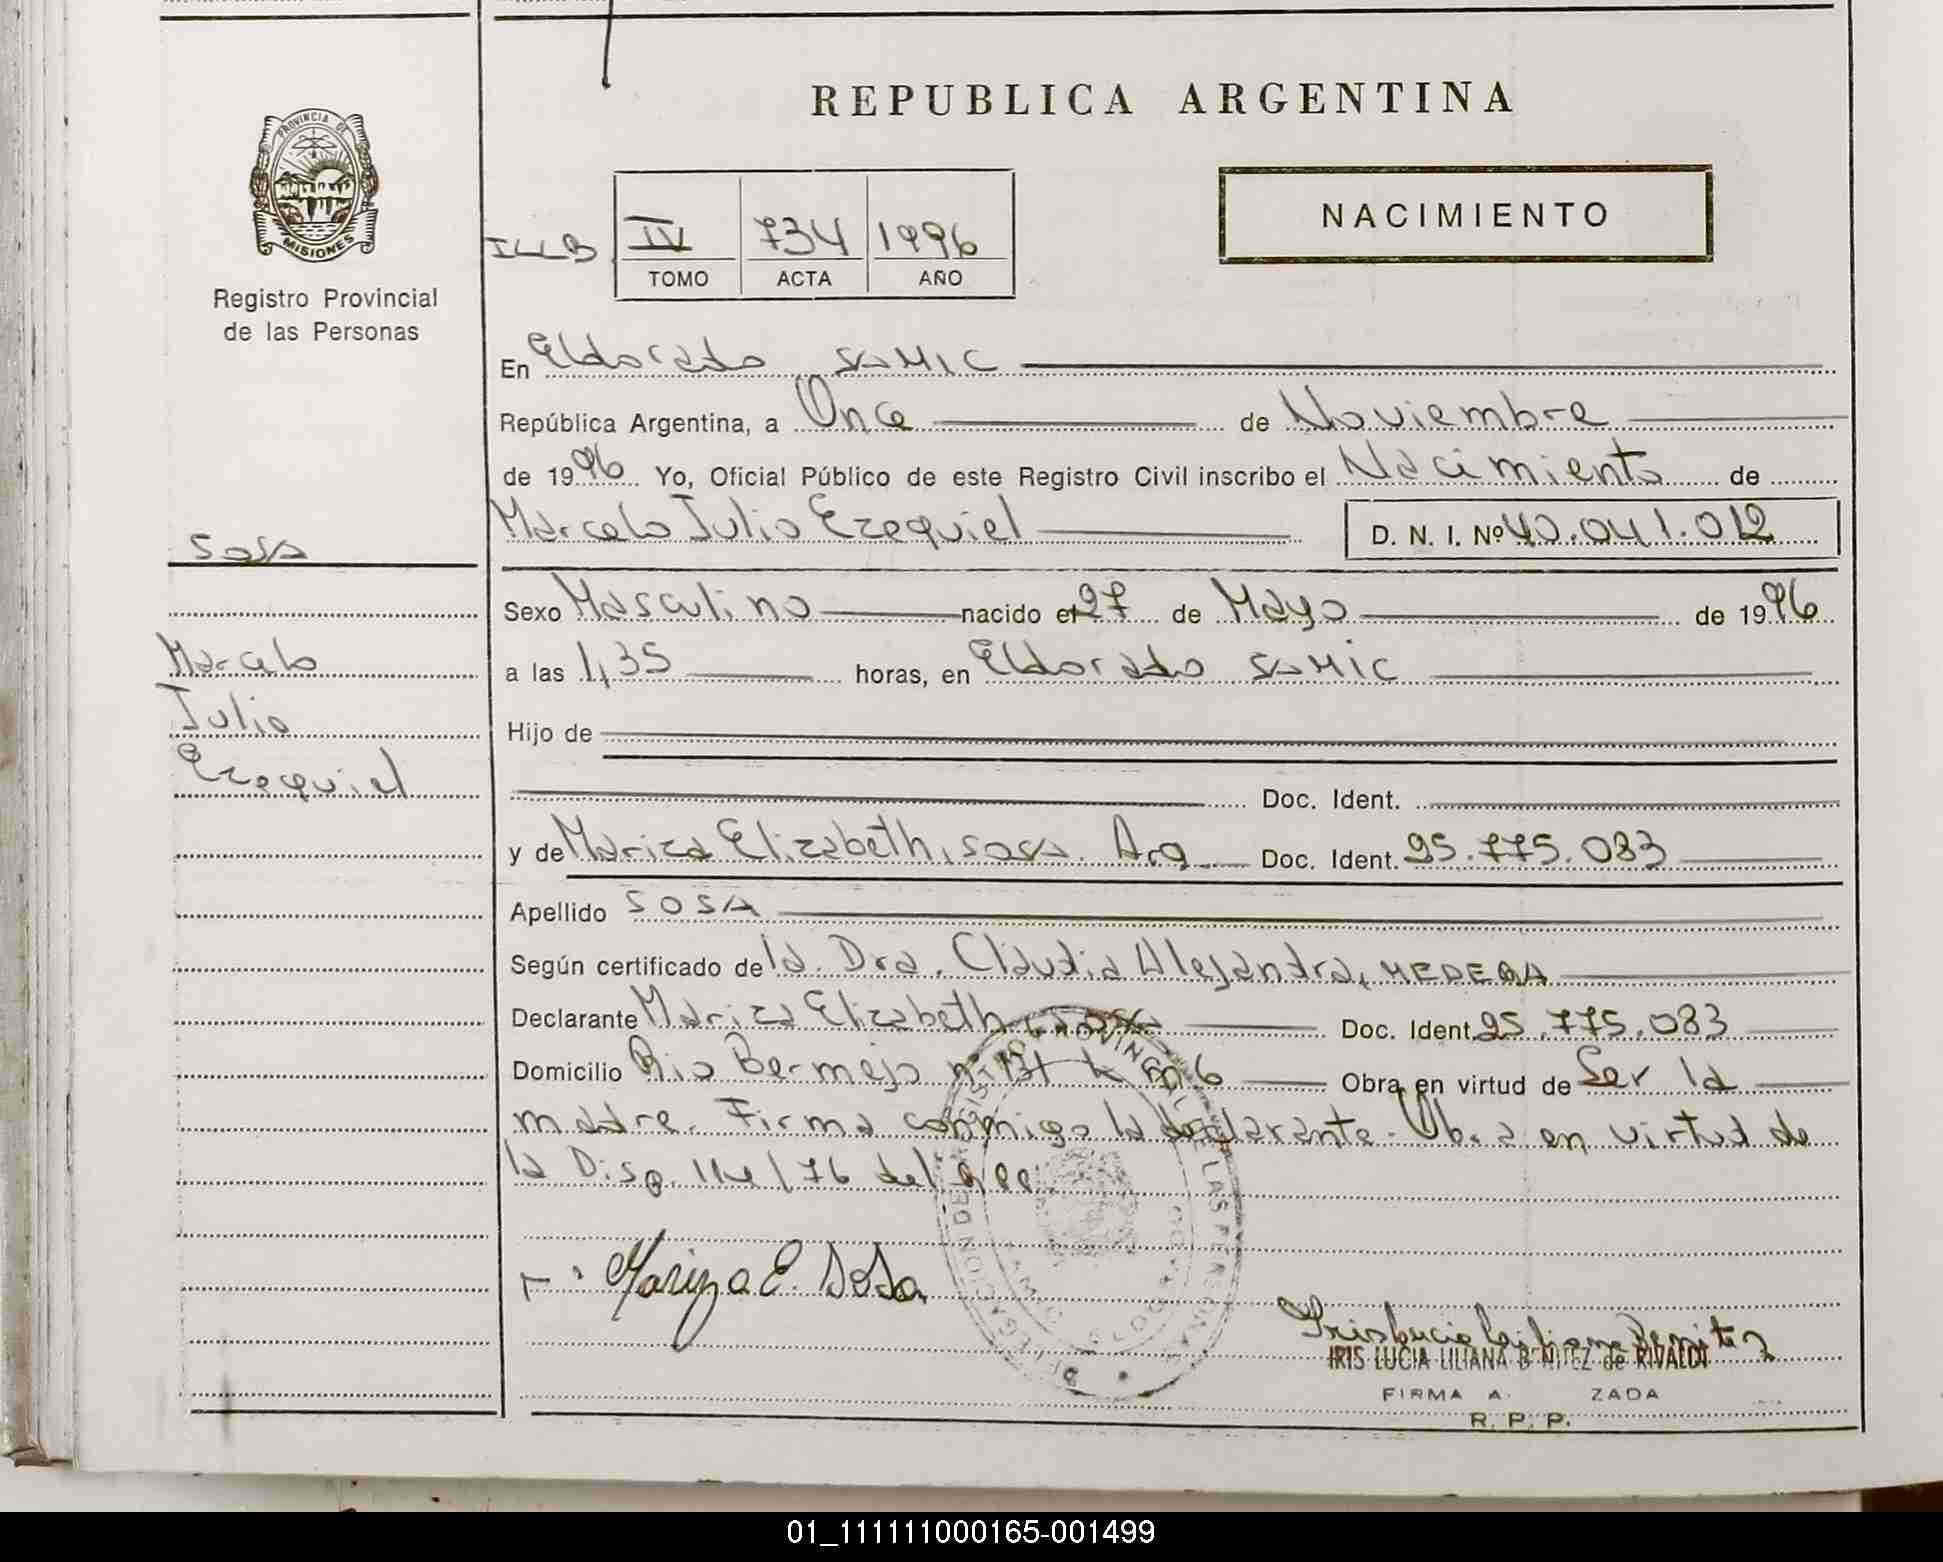 REPUBLICA ARGENTINA
PROVINCIA DE
MISIONES
Registro Provincial
de las Personas
NACIMIENTO
IV 734 1996
TOMO ACTA AÑO
En Eldorado SAMIC
República Argentina, a Once de Noviembre
de 1996 Yo, Oficial Público de este Registro Civil inscribo el Nacimiento de
Marcelo Julio Ezequiel D. N. I. Nº 40.041.012
Sosa
Sexo Masculino nacido el 27 de Mayo de 1996
Marcelo
a las 1,35 horas, en Eldorado SAMIC
Julio
Hijo de
Ezequiel
Doc. Ident.
y de Mariza Elizabeth, Sosa. Arg Doc. Ident. 25.775.083
Apellido SOSA
Según certificado de la Dra. Claudia Alejandra,
Declarante Mariza Elizabeth Sosa Doc. Ident. 25.775.083
Domicilio Rio Bermejo nº 131 k 6 Obra en virtud de Ser la
madre. Firma conmigo la declarante. Obra en virtud de
la Disp. 114/76 del
Mariza E. Sosa
Iris Lucia Liliana Benitez
IRIS LUCIA LILIANA BENITEZ de RIVALDI
FIRMA A ZADA
R. P. P.
01_111111000165-001499